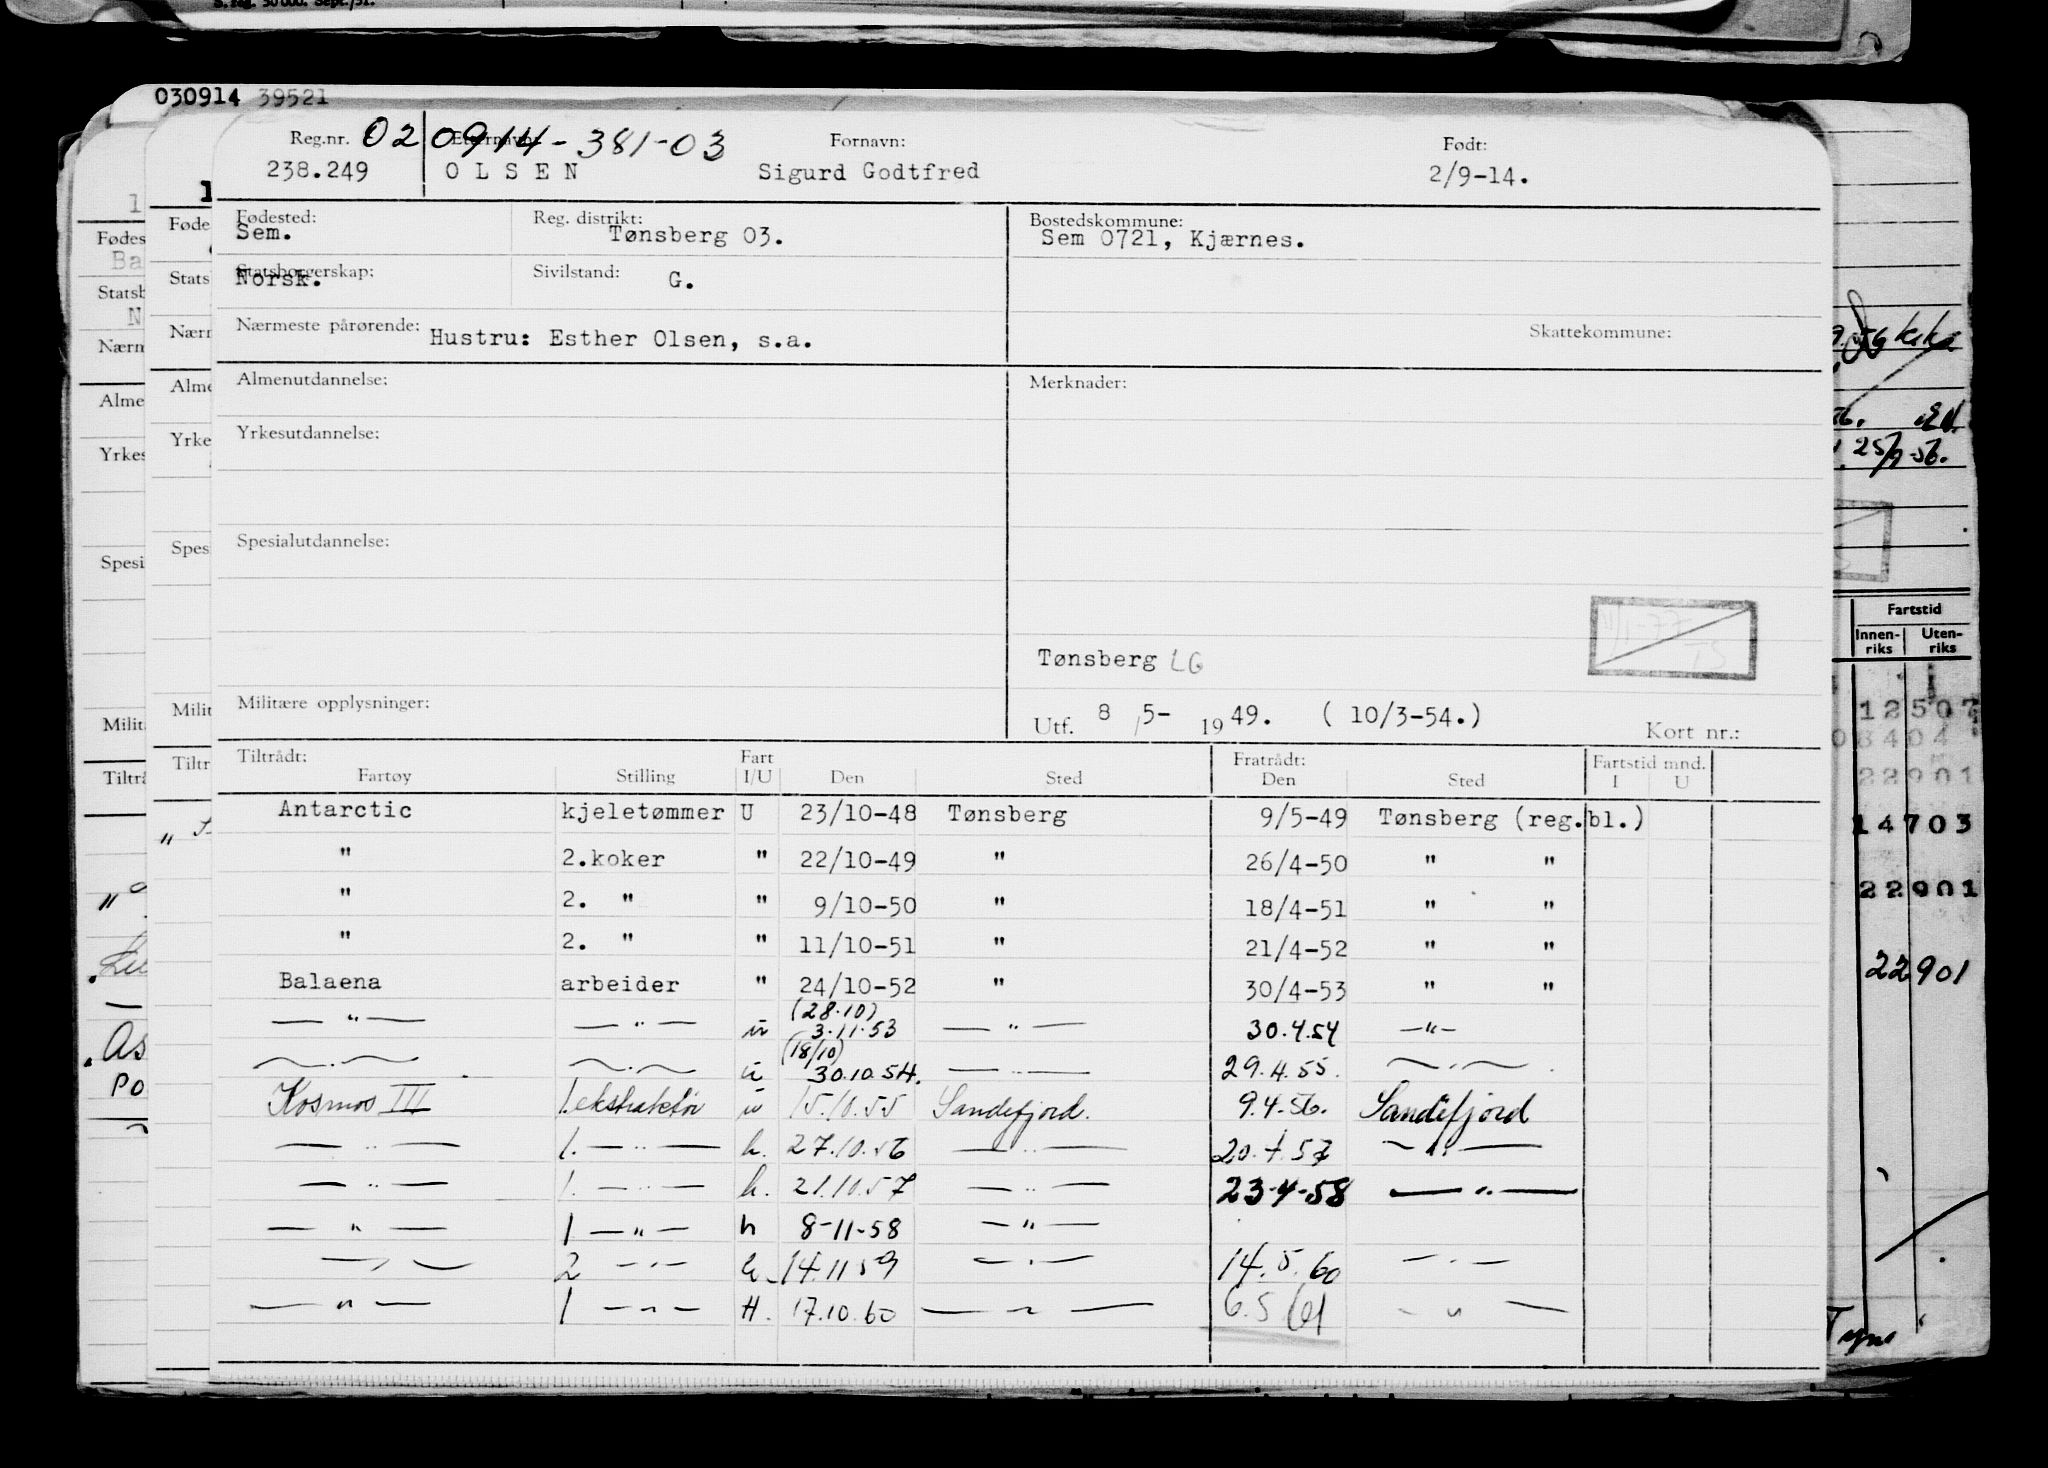 S. reg. 50 000. Sept./51.
030914 39521
Reg.nr. Etternavn: Fornavn: Født:
020914-381-03
238.249 OLSEN Sigurd Godtfred 2/9-14.
Fødested: Reg. distrikt: Bostedskommune:
Sem. Tønsberg 03. Sem 0721, Kjærnes.
Statsborgerskap: Sivilstand:
Norsk. G.
Nærmeste pårørende: Hustru: Esther Olsen, s.a. Skattekommune:
Almenutdannelse: Merknader:
Yrkesutdannelse:
Spesialutdannelse:
Tønsberg LG
Militære opplysninger: Utf. 8/5- 1949. (10/3-54.) Kort nr.:
Tiltrådt: Fart Fratrådt: Fartstid mnd.
Fartøy Stilling I/U Den Sted Den Sted I U
Antarctic kjeletømmer U 23/10-48 Tønsberg 9/5-49 Tønsberg (reg.bl.)
" 2.koker " 22/10-49 " 26/4-50 " "
" 2. " " 9/10-50 " 18/4-51 " "
" 2. " " 11/10-51 " 21/4-52 " "
Balaena arbeider " 24/10-52 " 30/4-53 " "
(28.10)
— " — — " — u 3.11.53 — " — 30.4.54 — " —
(18/10)
— " — — " — u 30.10.54. — " — 29.4.55. — " —
Kosmos III 1.ekstraktør u 15.10.55 Sandefjord. 9.4.56. Sandefjord
— " — 1. — " — h. 27.10.56 — " — 20.4.57 — " —
— " — 1. — " — h. 21.10.57 — " — 23-4-58 — " —
— " — 1 — " — h 8-11-58 — " —
— " — 2 — " — h. 14.11.59 — " — 14.5.60 — " —
— " — 1 — " — H. 17.10.60 — " — 6.5.61 — " —
25/9-56.
Fartstid
Innen-riks Uten-riks
12507
08404
22901
14703
22901
22901